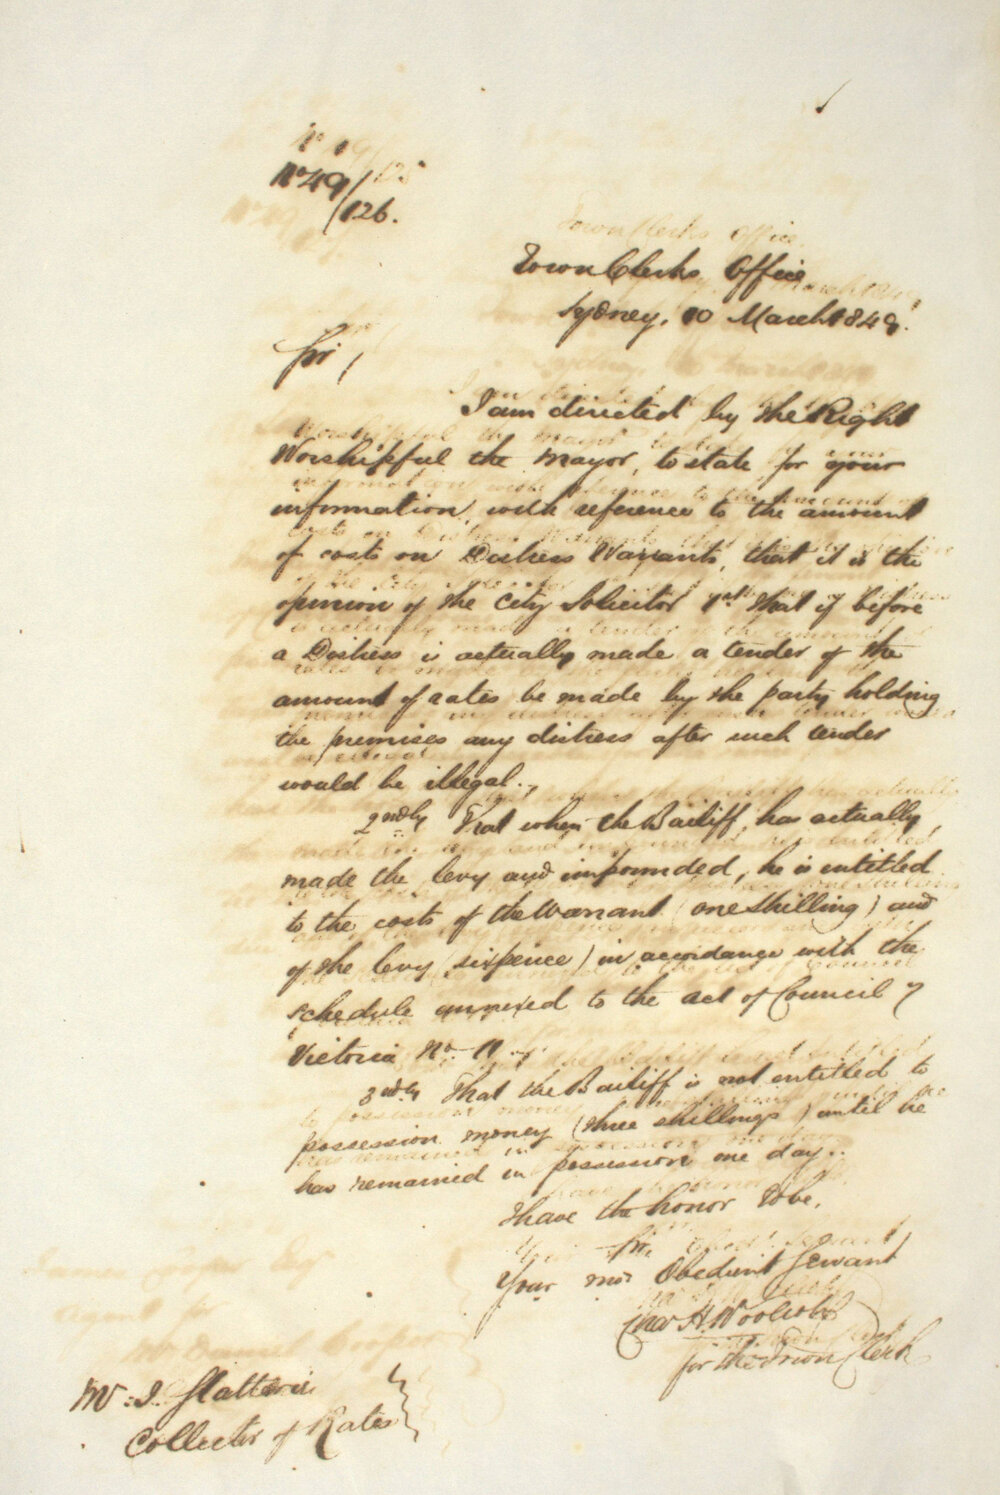 No 49/
/126.
Town Clerks Office
Sydney, 10 March 1849.
Sir,
I am directed by the Right
Worshipful the Mayor, to state for your
information, with reference to the amount
of costs on Distress Warrants, that it is the
opinion of the City Solicitor 1st that if before
a Distress is actually made a tender of the
amount of rates be made by the party holding
the premises any distress after such tender
would be illegal.,
2ndly That when the Bailiff, has actually
made the levy and impounded, he is entitled
to the costs of the Warrant (one shilling) and
of the levy (sixpence) in accordance with the
schedule annexed to the act of Council 7
Victoria No.
3rdly That the Bailiff is not entitled to
possession money (three shillings) until he
has remained in possession one day..
I have the honor to be,
Sir,
Your mo: Obedient Servant
Chas H. Woolcott
for the Town Clerk
Mr. J. Slatterie
Collector of Rates